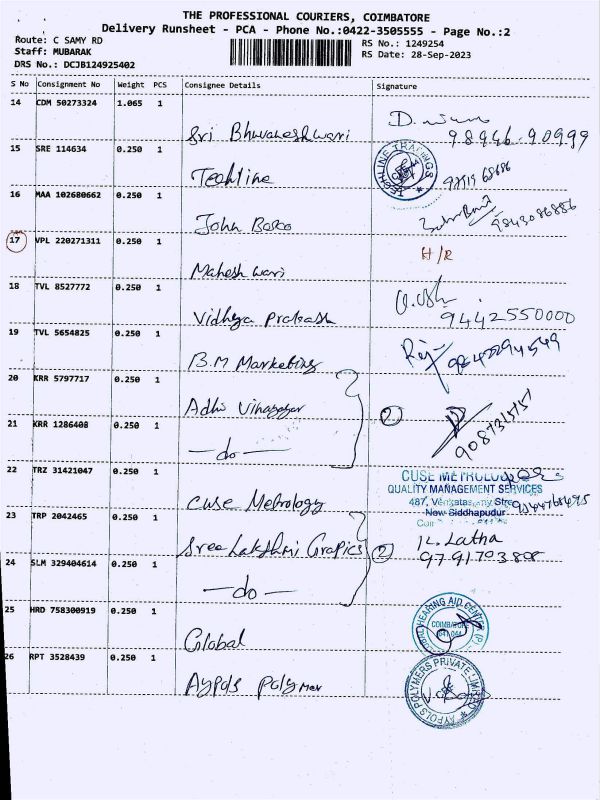 THE PROFESSIONAL COURIERS, COIMBATORE
Delivery Runsheet - PCA - Phone No.:0422-3505555 - Page No.:2
Route: C SAMY RD
RS No.: 1249254
Staff: MUBARAK
RS Date: 28-Sep-2023
DRS No.: DCJB124925402
S No Consignment No Weight PCS Consignee Details Signature
14 CDM 50273324 1.065 1
Sri Bhuvaneshwari
98946-90999
15 SRE 114634 0.250 1
TECHLINE TRADINGS
Techline
16 MAA 102680662 0.250 1
John Bosco
9843086886
17 VPL 220271311 0.250 1
H/R
Maheshwari
18 TVL 8527772 0.250 1
Vidhya Prakash
9442550000
19 TVL 5654825 0.250 1
B.M Marketing
20 KRR 5797717 0.250 1
Adhi Vinayagar
2
21 KRR 1286408 0.250 1
9087315151
-do-
22 TRZ 31421047 0.250 1
CUSE METROLOGY
QUALITY MANAGEMENT SERVICES
487, Venkatasamy Street
New Siddhapudur
Cuse Metrology
23 TRP 2042465 0.250 1
Sree Lakshmi Grapics
2
K. Latha
24 SLM 329404614 0.250 1
-do-
25 HRD 758300919 0.250 1
HEARING AID CENTRE
COIMBATORE
641 044
Global
26 RPT 3528439 0.250 1
AYPOLS POLYMERS PRIVATE LIMITED
Aypols Polymer